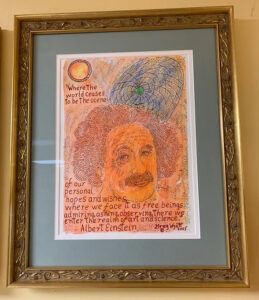 "Where the
world ceases
to be the scene
of our
personal
hopes and wishes,
where we face it as free beings
admiring, asking, observing, there we
enter the realm of art and science."
Albert Einstein